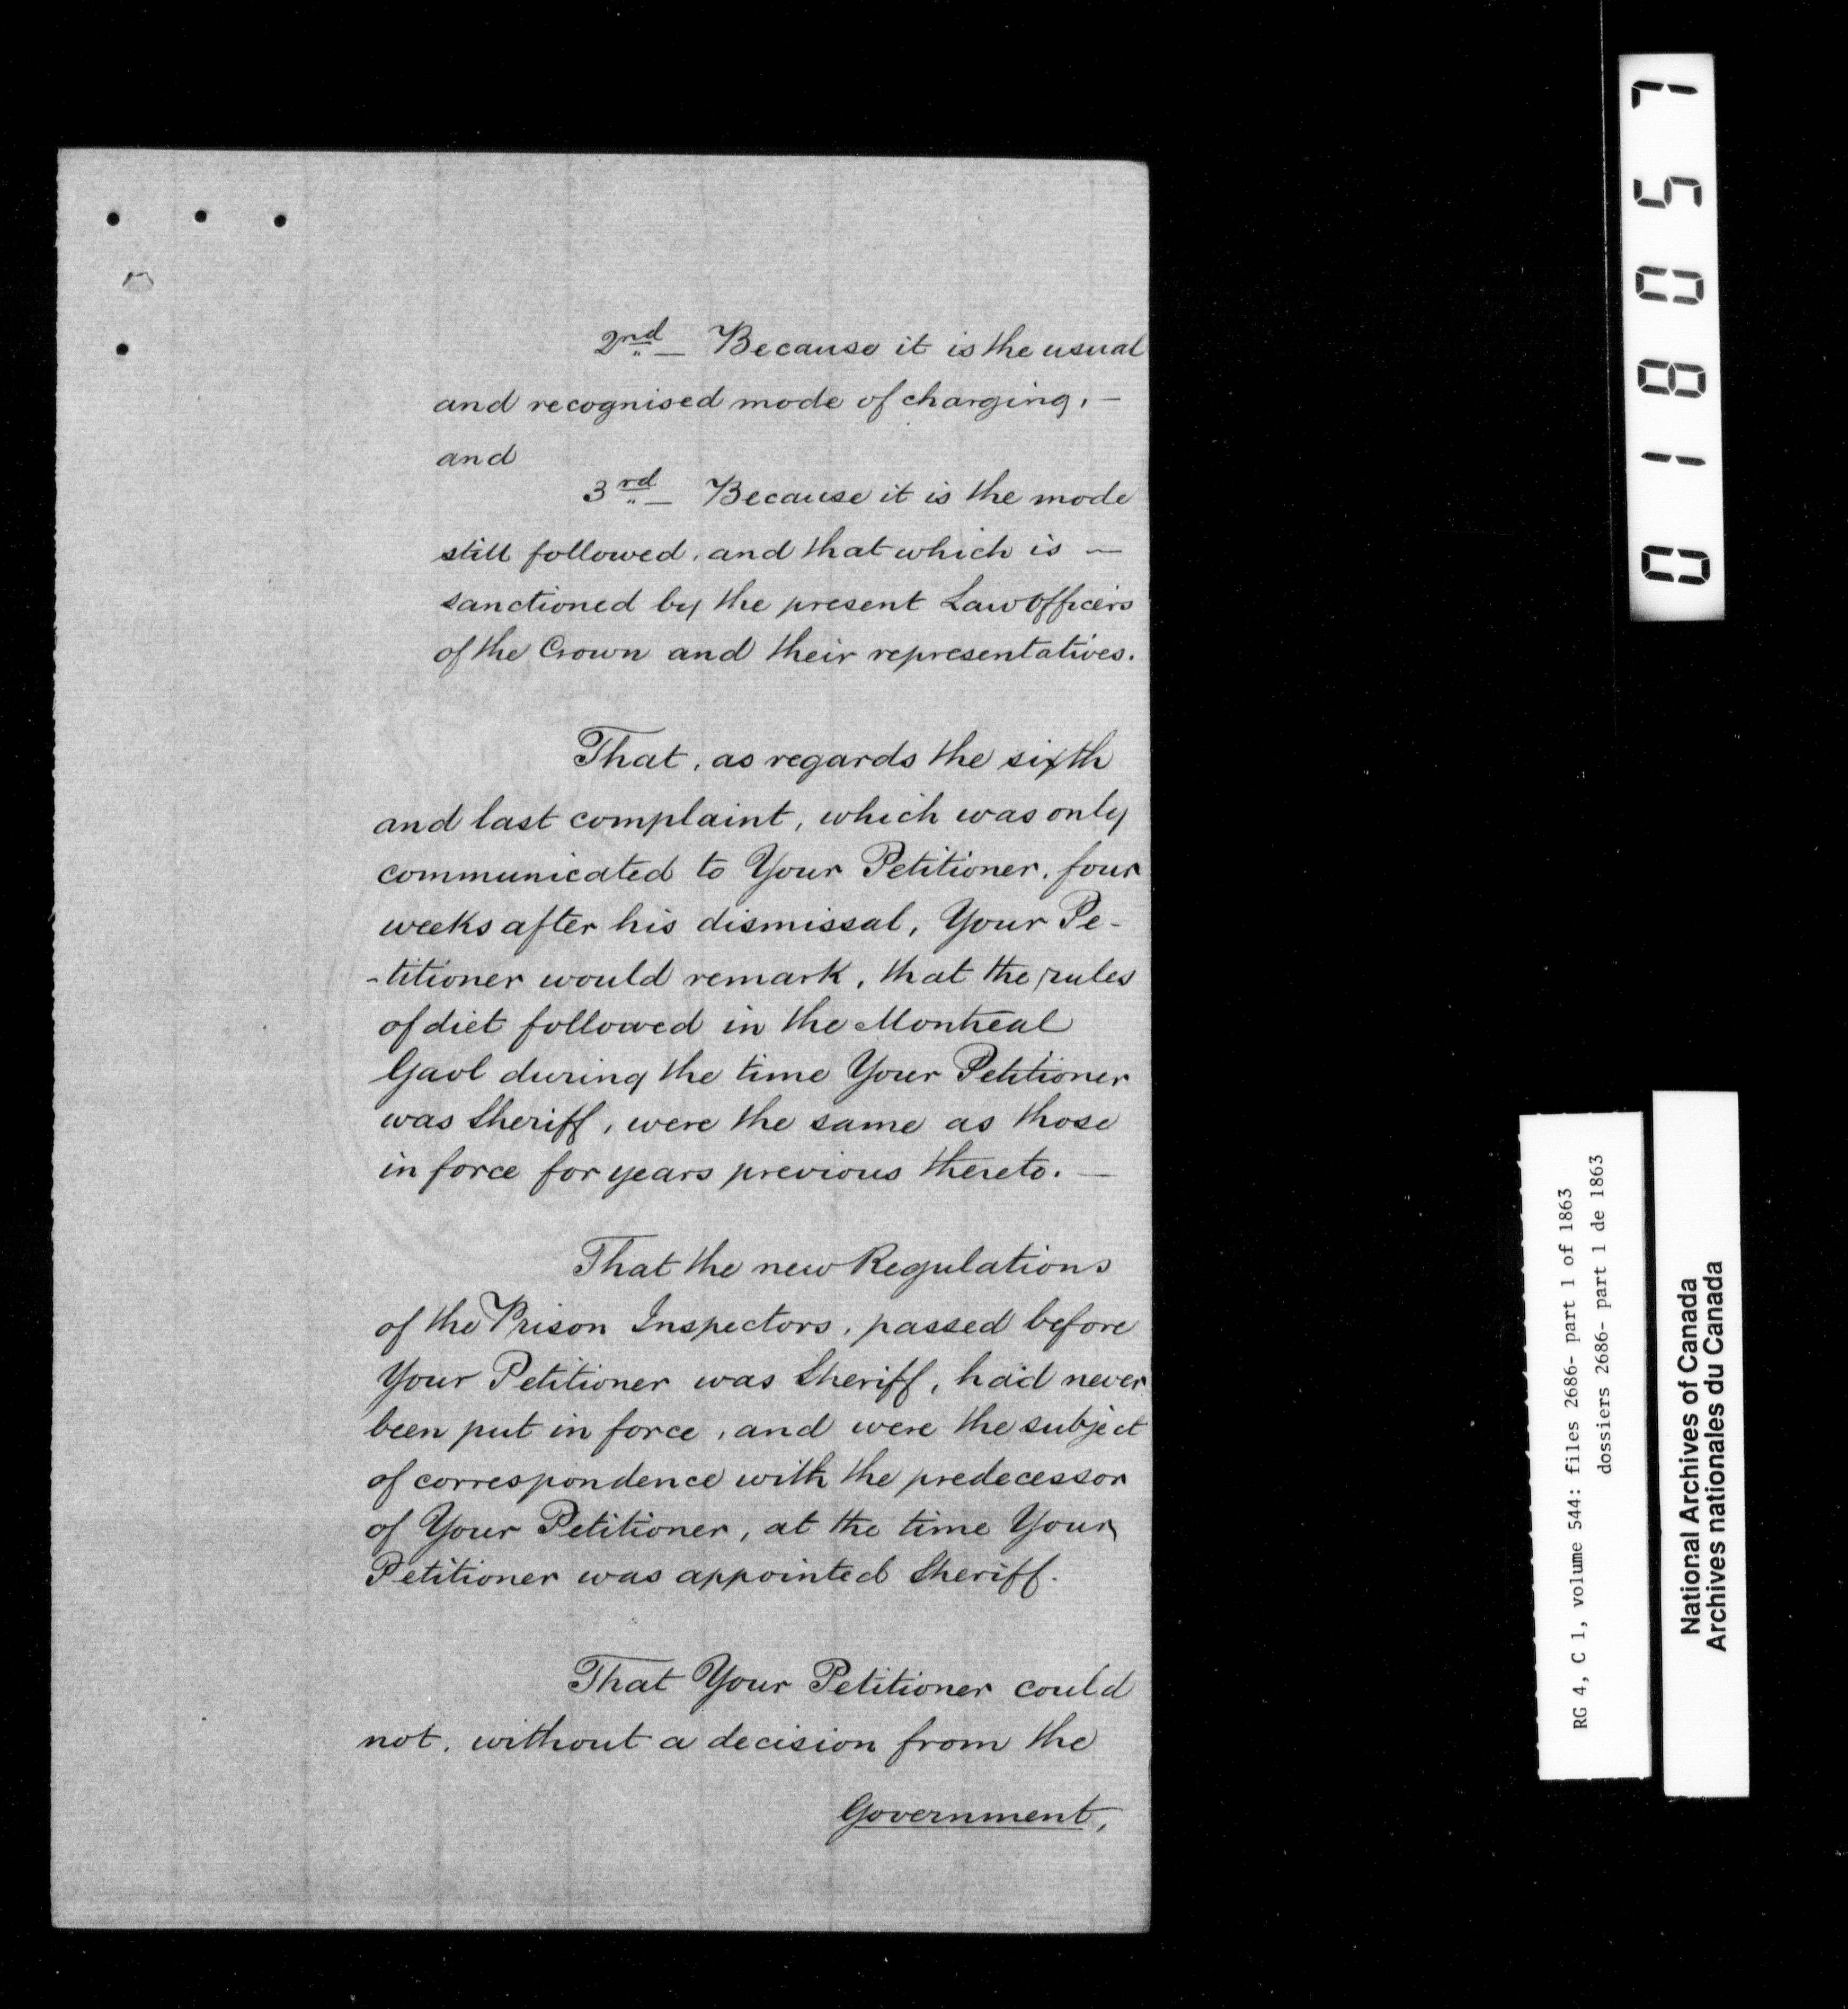 2nd — Because it is the usual
and recognised mode of charging, —
and
3rd — Because it is the mode
still followed, and that which is —
sanctioned by the present Law Officers
of the Crown and their representatives.
That, as regards the sixth
and last complaint, which was only
communicated to Your Petitioner, four
weeks after his dismissal, Your Pe-
-titioner would remark, that the rules
of diet followed in the Montreal
Gaol during the time Your Petitioner
was Sheriff, were the same as those
in force for years previous thereto. —
That the new Regulations
of the Prison Inspectors, passed before
Your Petitioner was Sheriff, had never
been put in force, and were the subject
of correspondence with the predecessor
of Your Petitioner, at the time Your
Petitioner was appointed Sheriff.
That Your Petitioner could
not, without a decision from the
Government,
018057
RG 4, C 1, volume 544: files 2686- part 1 of 1863
dossiers 2686- part 1 de 1863
National Archives of Canada
Archives nationales du Canada